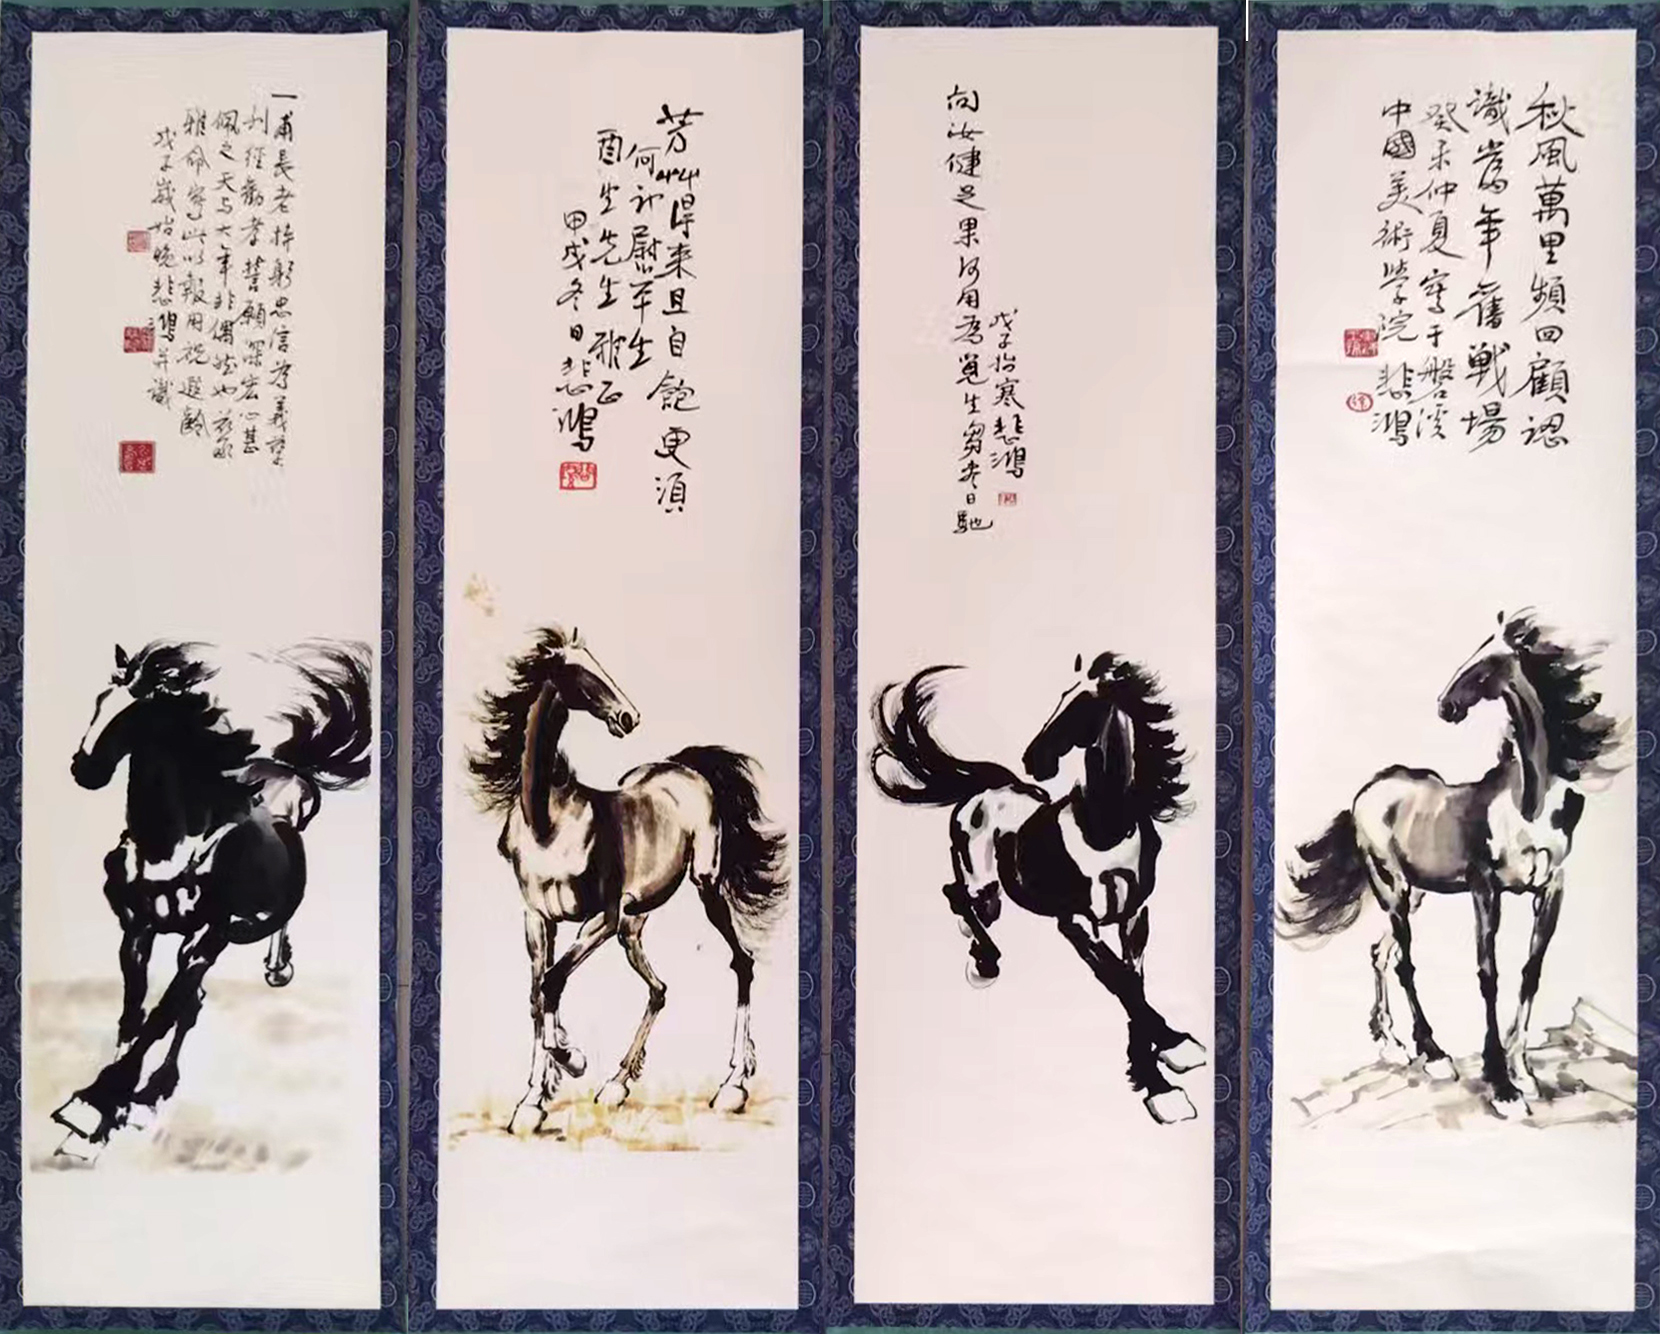 秋風萬里頻回顧認
識當年舊戰場
癸未仲夏寫于磐溪
中國美術學院 悲鴻
問汝健足果何用為覓生芻盡日馳
戊子始寒悲鴻
芳艸得来且自飽更須
何計慰平生
酉生先生雅正
甲戌冬日悲鴻
一甫長老持躬忠信為義
利經勸孝誓願深宏心甚
佩之天与大年非偶然也茲承
雅命寫此以報用祝遐齡
戊子歲始晚悲鴻并識